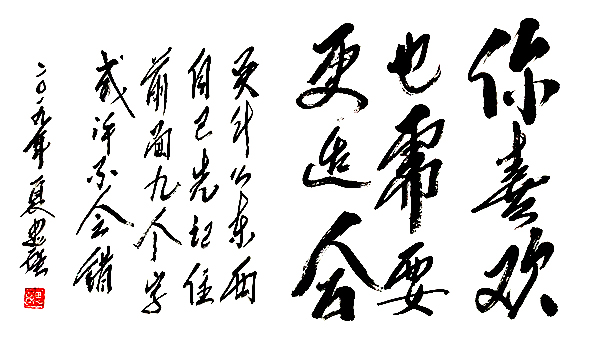 你喜欢
也需要
更适合
买什么东西
自己先记住
前面九个字
或许不会错
二〇一九年夏